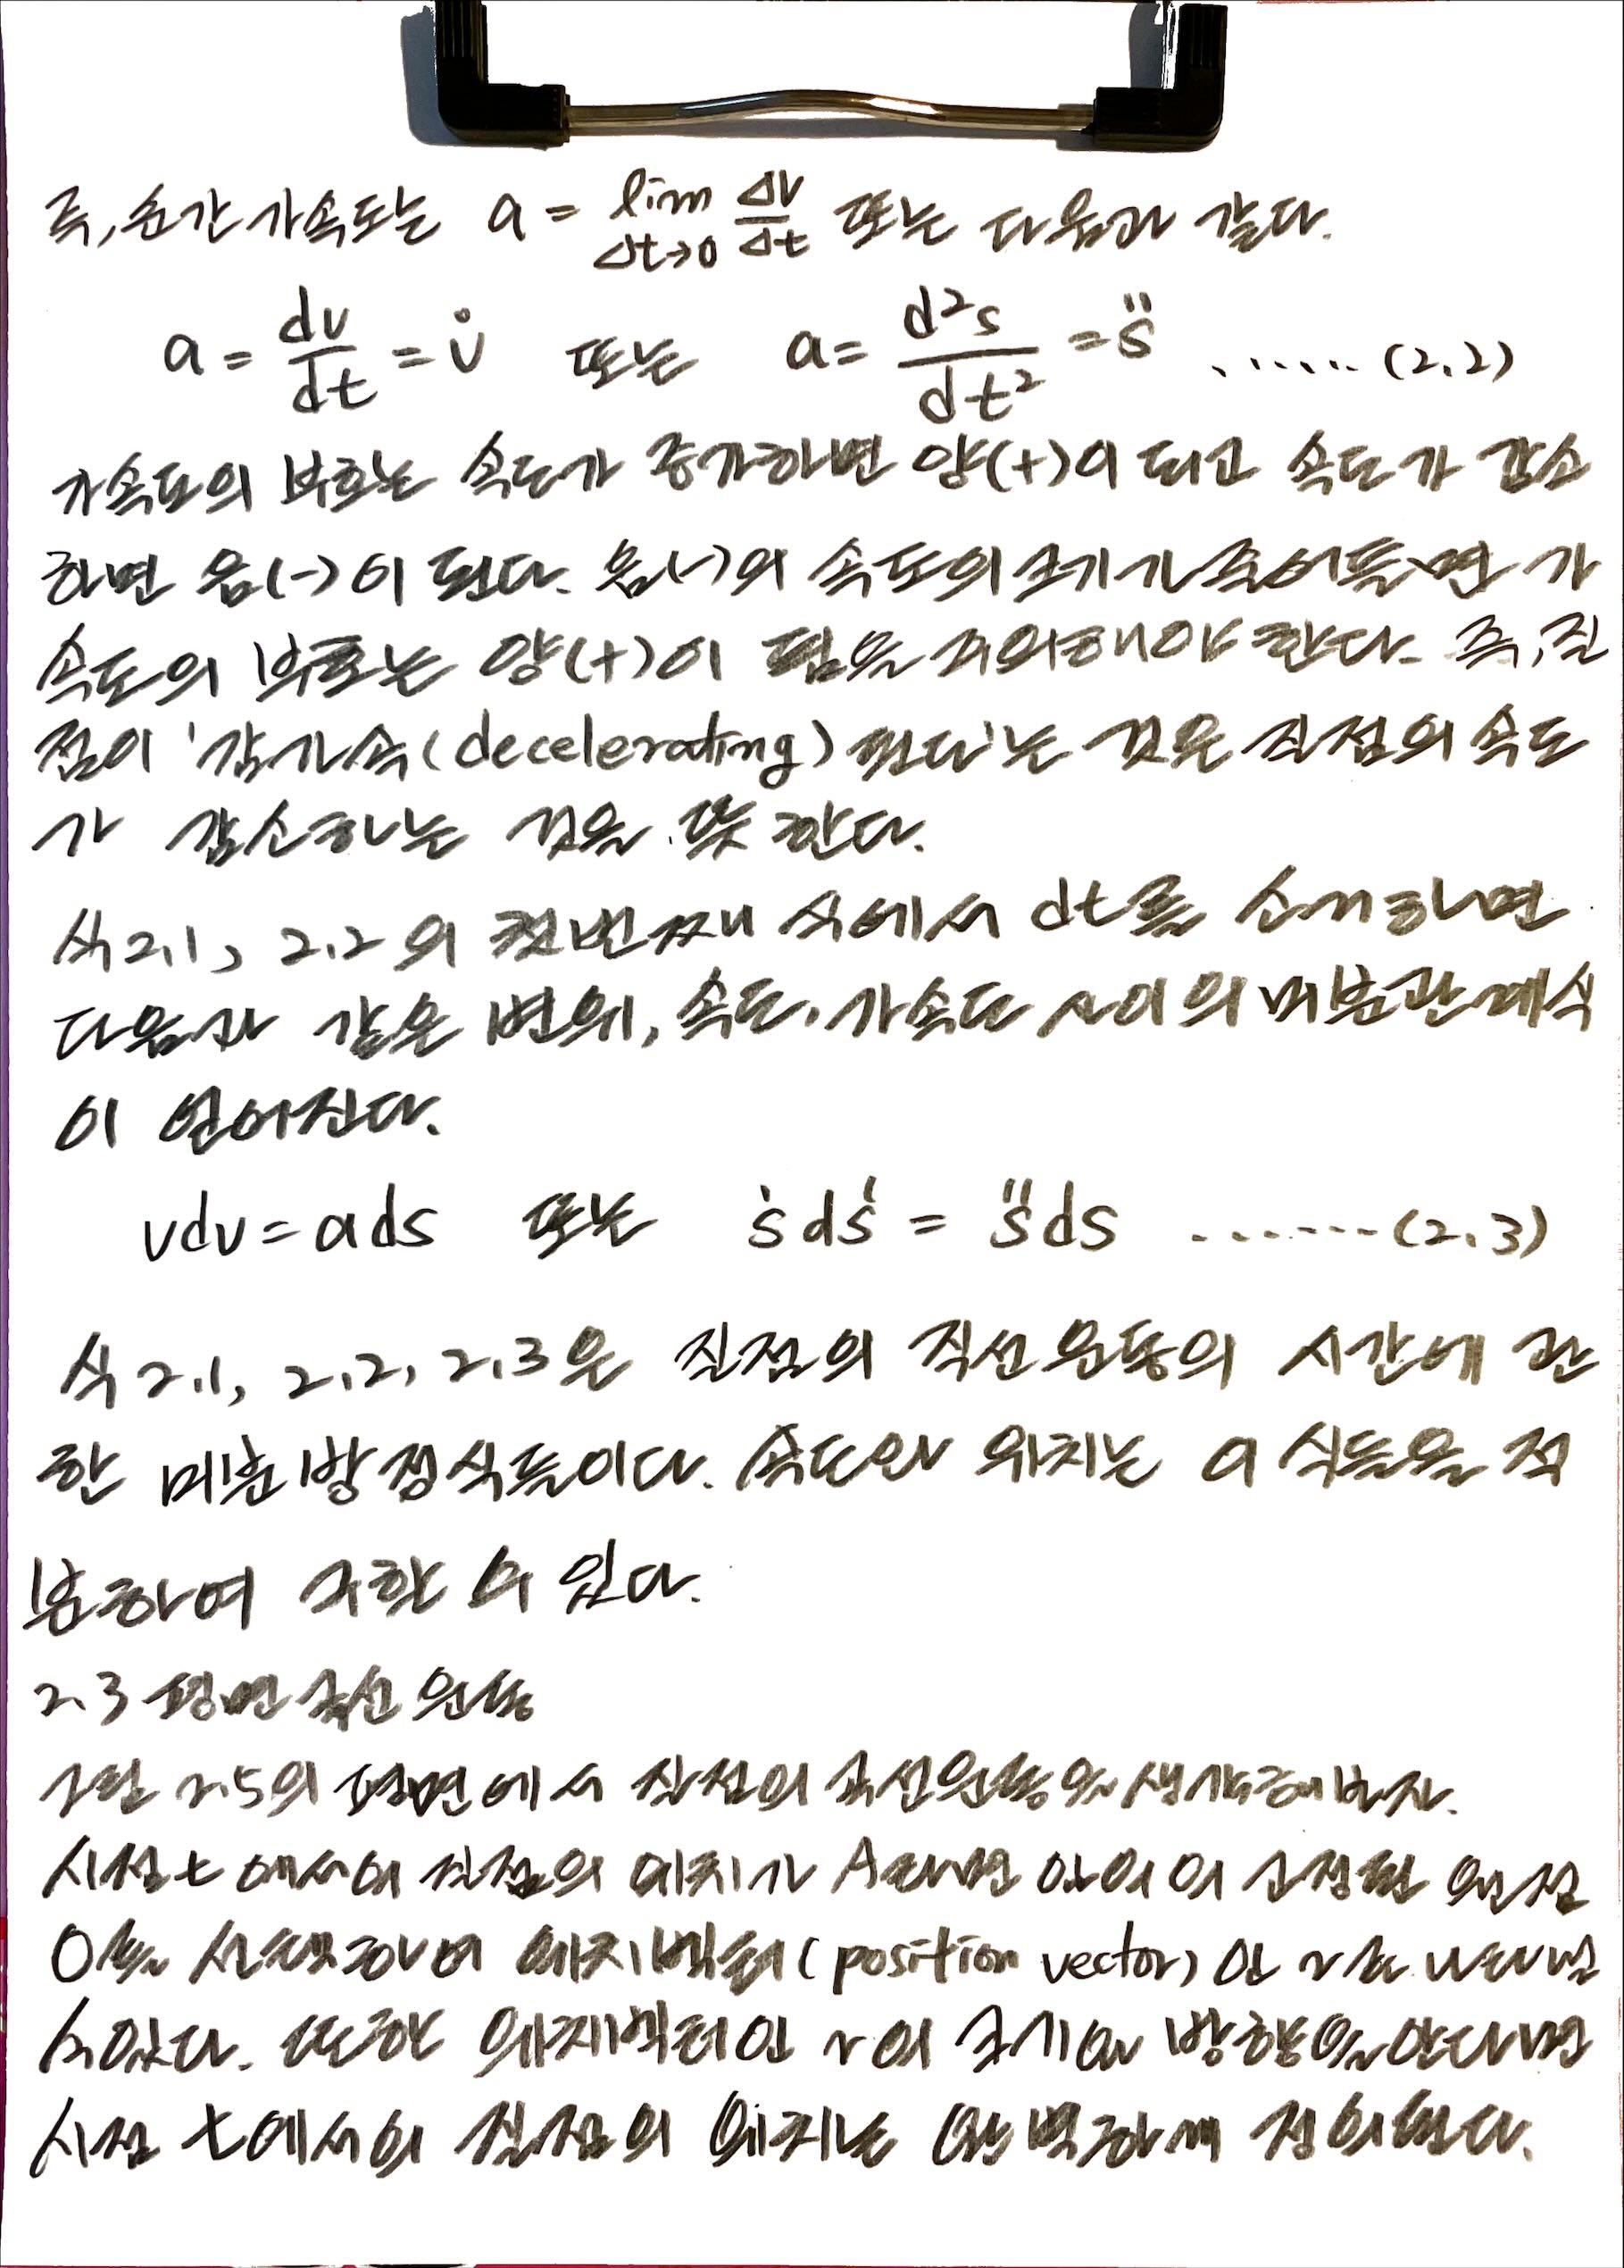 즉, 순간 가속도는 a = lim Δt→0 Δv/Δt 또는 다음과 같다.
a = dv/dt = v̇ 또는 a = d²s/dt² = s̈ ...... (2.2)
가속도의 부호는 속도가 증가하면 양(+)이 되고 속도가 감소
하면 음(-)이 된다. 음(-)의 속도의 크기가 줄어들면 가
속도의 부호는 양(+)이 됨을 주의해야 한다. 즉, 질
점이 '감가속(decelerating) 된다'는 것은 질점의 속도
가 감소하는 것을 뜻한다.
식 2.1, 2.2의 첫번째 식에서 dt를 소거하면
다음과 같은 변위, 속도, 가속도 사이의 미분관계식
이 얻어진다.
vdv = ads 또는 ṡdṡ = s̈ds ....... (2.3)
식 2.1, 2.2, 2.3은 질점의 직선운동의 시간에 관
한 미분방정식들이다. 속도와 위치는 이 식들을 적
분하여 구할 수 있다.
2.3 평면 곡선 운동
그림 2.5의 평면에서 질점의 곡선운동을 생각해보자.
시점 t에서의 질점의 위치가 A라면 임의의 고정된 원점
O를 선택하여 위치벡터(position vector)인 r로 나타낼
수있다. 또한 위치벡터인 r의 크기와 방향을 안다면
시점 t에서의 질점의 위치는 완벽하게 정의된다.